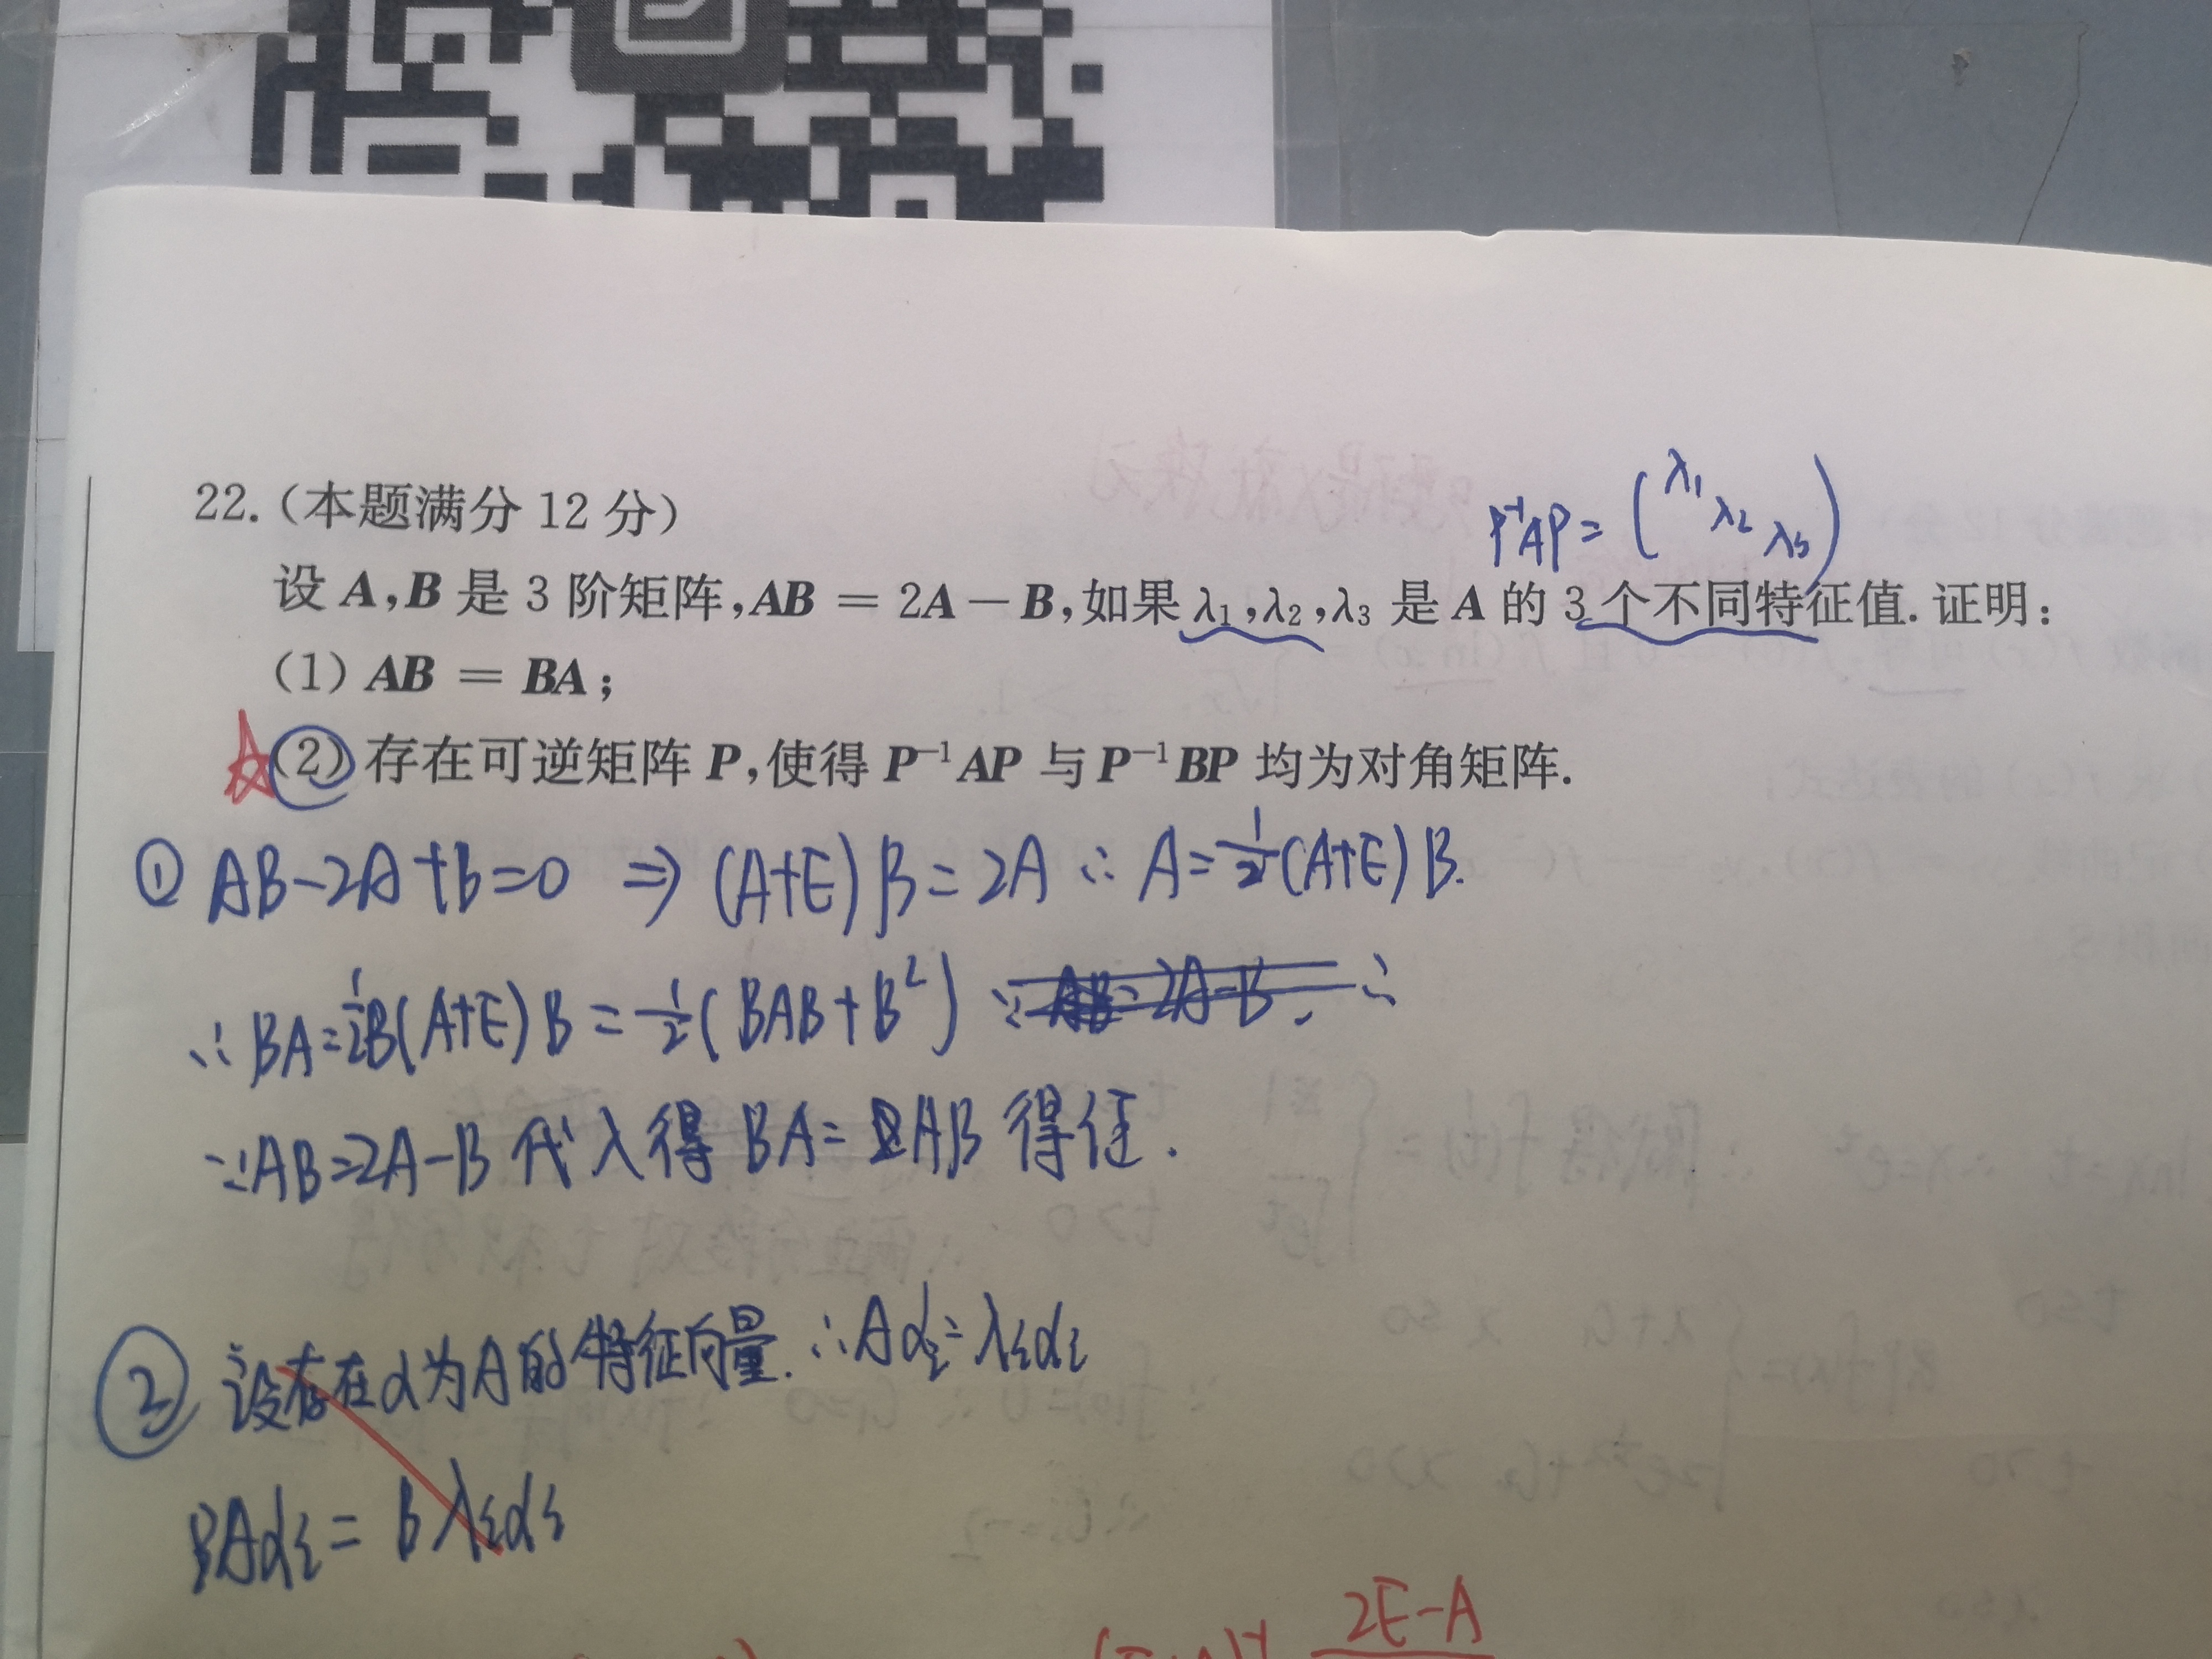 22.(本题满分 12 分)
P⁻¹AP = (λ₁ λ₂ λ₃)
设 A,B 是 3 阶矩阵,AB = 2A − B,如果 λ₁,λ₂,λ₃ 是 A 的 3 个不同特征值. 证明:
(1) AB = BA;
(2) 存在可逆矩阵 P,使得 P⁻¹AP 与 P⁻¹BP 均为对角矩阵.
① AB−2A+B=0 ⇒ (A+E)B=2A ∴ A=½(A+E)B.
∴ BA=½B(A+E)B=½(BAB+B²) ∵ AB=2A−B, ∴
∵AB=2A−B 代入得 BA=AB 得证.
② 设存在α为A的特征向量. ∴Aαᵢ=λᵢαᵢ
BAαᵢ=Bλᵢαᵢ
2E−A